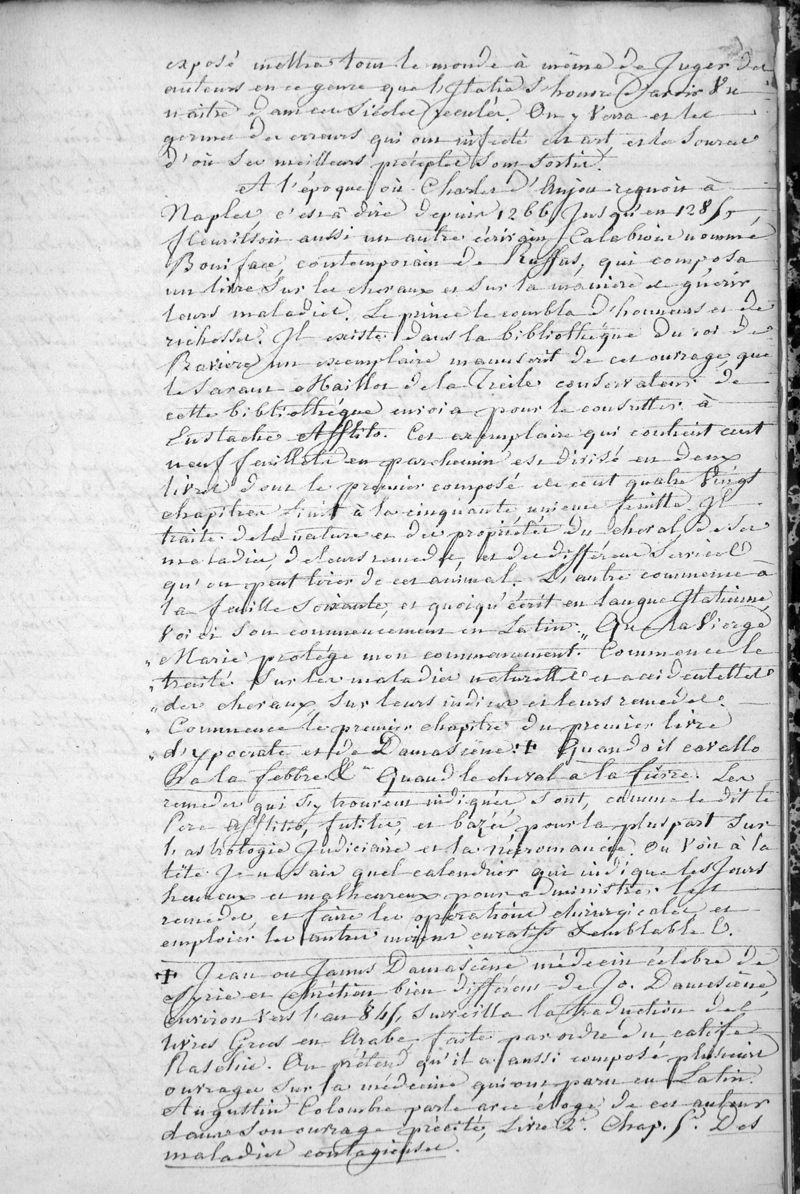 exposé mettra tout le monde à même de Juger des
auteurs en ce genre que l'Italie s'honore d'avoir Vu
naitre dans ces Siécles reculés. On y Verra et les
germes des erreurs qui ont infecté cet art, et la Source
d'où Ses meilleurs préceptes Sont Sortis.
A l'époque où Charles d'Anjou regnoit à
Naples c'est à dire depuis 1266, Jusqu'en 1285,
fleurissoit aussi un autre écrivain Calabrois nommé
Boniface, contemporain de Ruffus, qui composa
un livre Sur les chevaux et Sur la manière de guérir
leurs maladies. Le prince le combla d'honneurs et de
richesses. Il existe dans la bibliothéque du roi de
Baviere un exemplaire manuscrit de cet ouvrage, que
le Savant Maillot de la Treile conservateur de
cette bibliothéque envoia pour le consulter à
Eustache Afflito. Cet exemplaire qui contient cent
neuf feuillets en parchemin est divisé en deux
livres dont le premier composé de cent quatre Vingt
chapitres finit à la cinquante unieme feuille. Il
traite de la nature et des propriétés du cheval, de Ses
maladies, de leurs remedes, et des differens Services
qu'on peut tirer de cet animal. L'autre commence à
la feuille Soixante, et quoiqu'écrit en langue Italienne,
Voici Son commencement en Latin: „ Que la Vierge
„ Marie protége mon commencement. Commence le
„ traité Sur les maladies naturelles et accidentelles
„ des chevaux, Sur leurs indices et leurs remedes.
„ Commence le premier chapitre du premier livre
„ d'Ypocrate et de Damascène: ✝ Quando il cavallo
ha la febbre &.a Quand le cheval a la fièvre. Les
remedes qui S'y trouvent indiqués Sont, comme le dit le
Pere Afflito, futiles, et bazés pour la pluspart Sur
l'astrologie Judiciaire et la nécromancie. On Voit à la
tête Je ne Sais quel calendrier qui indique les Jours
heureux et malheureux pour administrer les
remedes, et faire les opérations chirurgicales et
emploier les autres moiens curatifs Semblables.
✝ Jean ou Janus Damascène médecin célebre de
Syrie et chrétien bien different de Jo. Damascène,
environ Vers l'an 845, Surveilla la traduction des
livres Grecs en Arabe faite par ordre du calife
Raschid. On prétend qu'il a aussi composé plusieurs
ouvrages Sur la médecine qui ont paru en Latin.
Augustin Colombre parle avec éloge de cet auteur
dans Son ouvrage précité, Livre 2.e Chap. 5.e Des
maladies contagieuses.